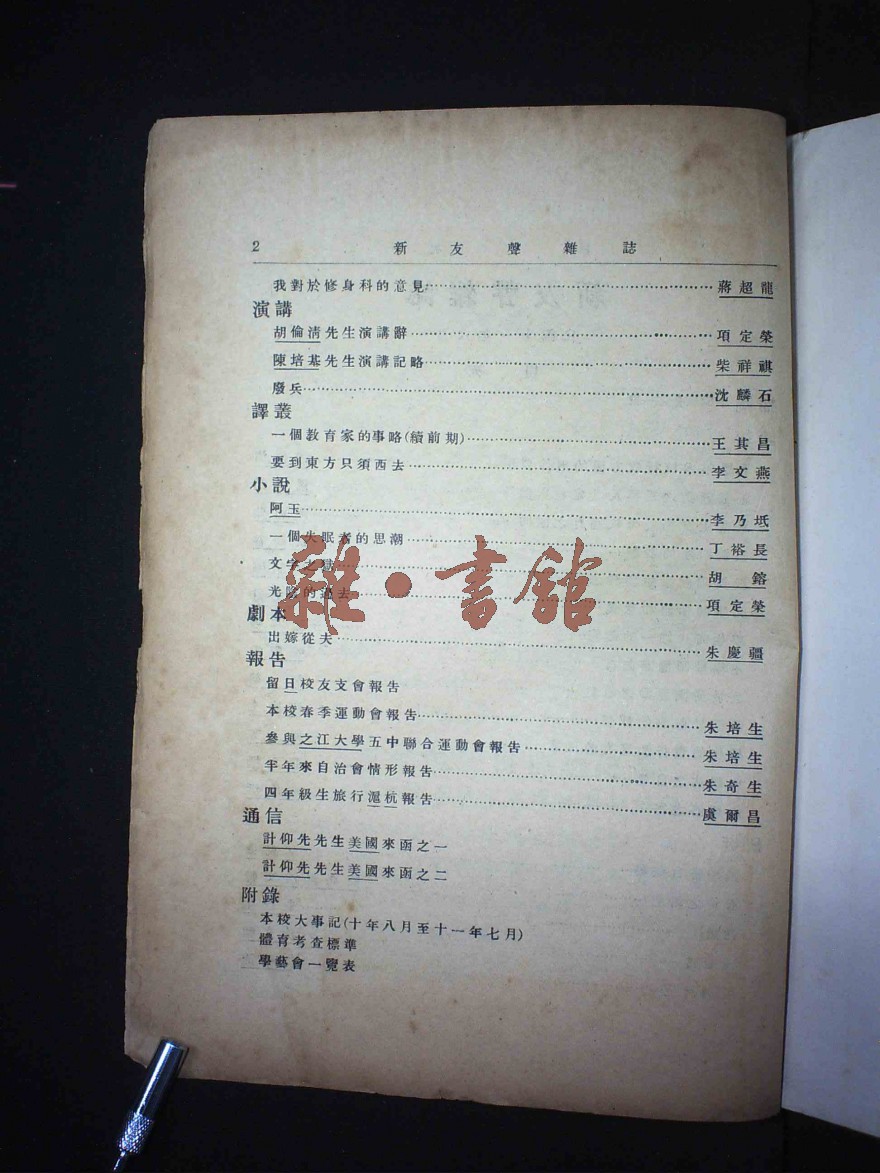 2 新友聲雜誌
我對於修身科的意見 蔣超龍
演講
胡倫清先生演講辭 項定榮
陳培基先生演講記略 柴祥祺
廢兵 沈麟石
譯叢
一個教育家的事略(續前期) 王其昌
要到東方只須西去 李文燕
小說
阿玉 李乃坻
一個失眠者的思潮 丁裕長
文字之獄 胡鎔
光陰的過去 項定榮
雜·書館
劇本
出嫁從夫 朱慶疆
報告
留日校友支會報告
本校春季運動會報告 朱培生
參與之江大學五中聯合運動會報告 朱培生
半年來自治會情形報告 朱奇生
四年級生旅行滬杭報告 虞爾昌
通信
計仰先先生美國來函之一
計仰先先生美國來函之二
附錄
本校大事記(十年八月至十一年七月)
體育考查標準
學藝會一覽表